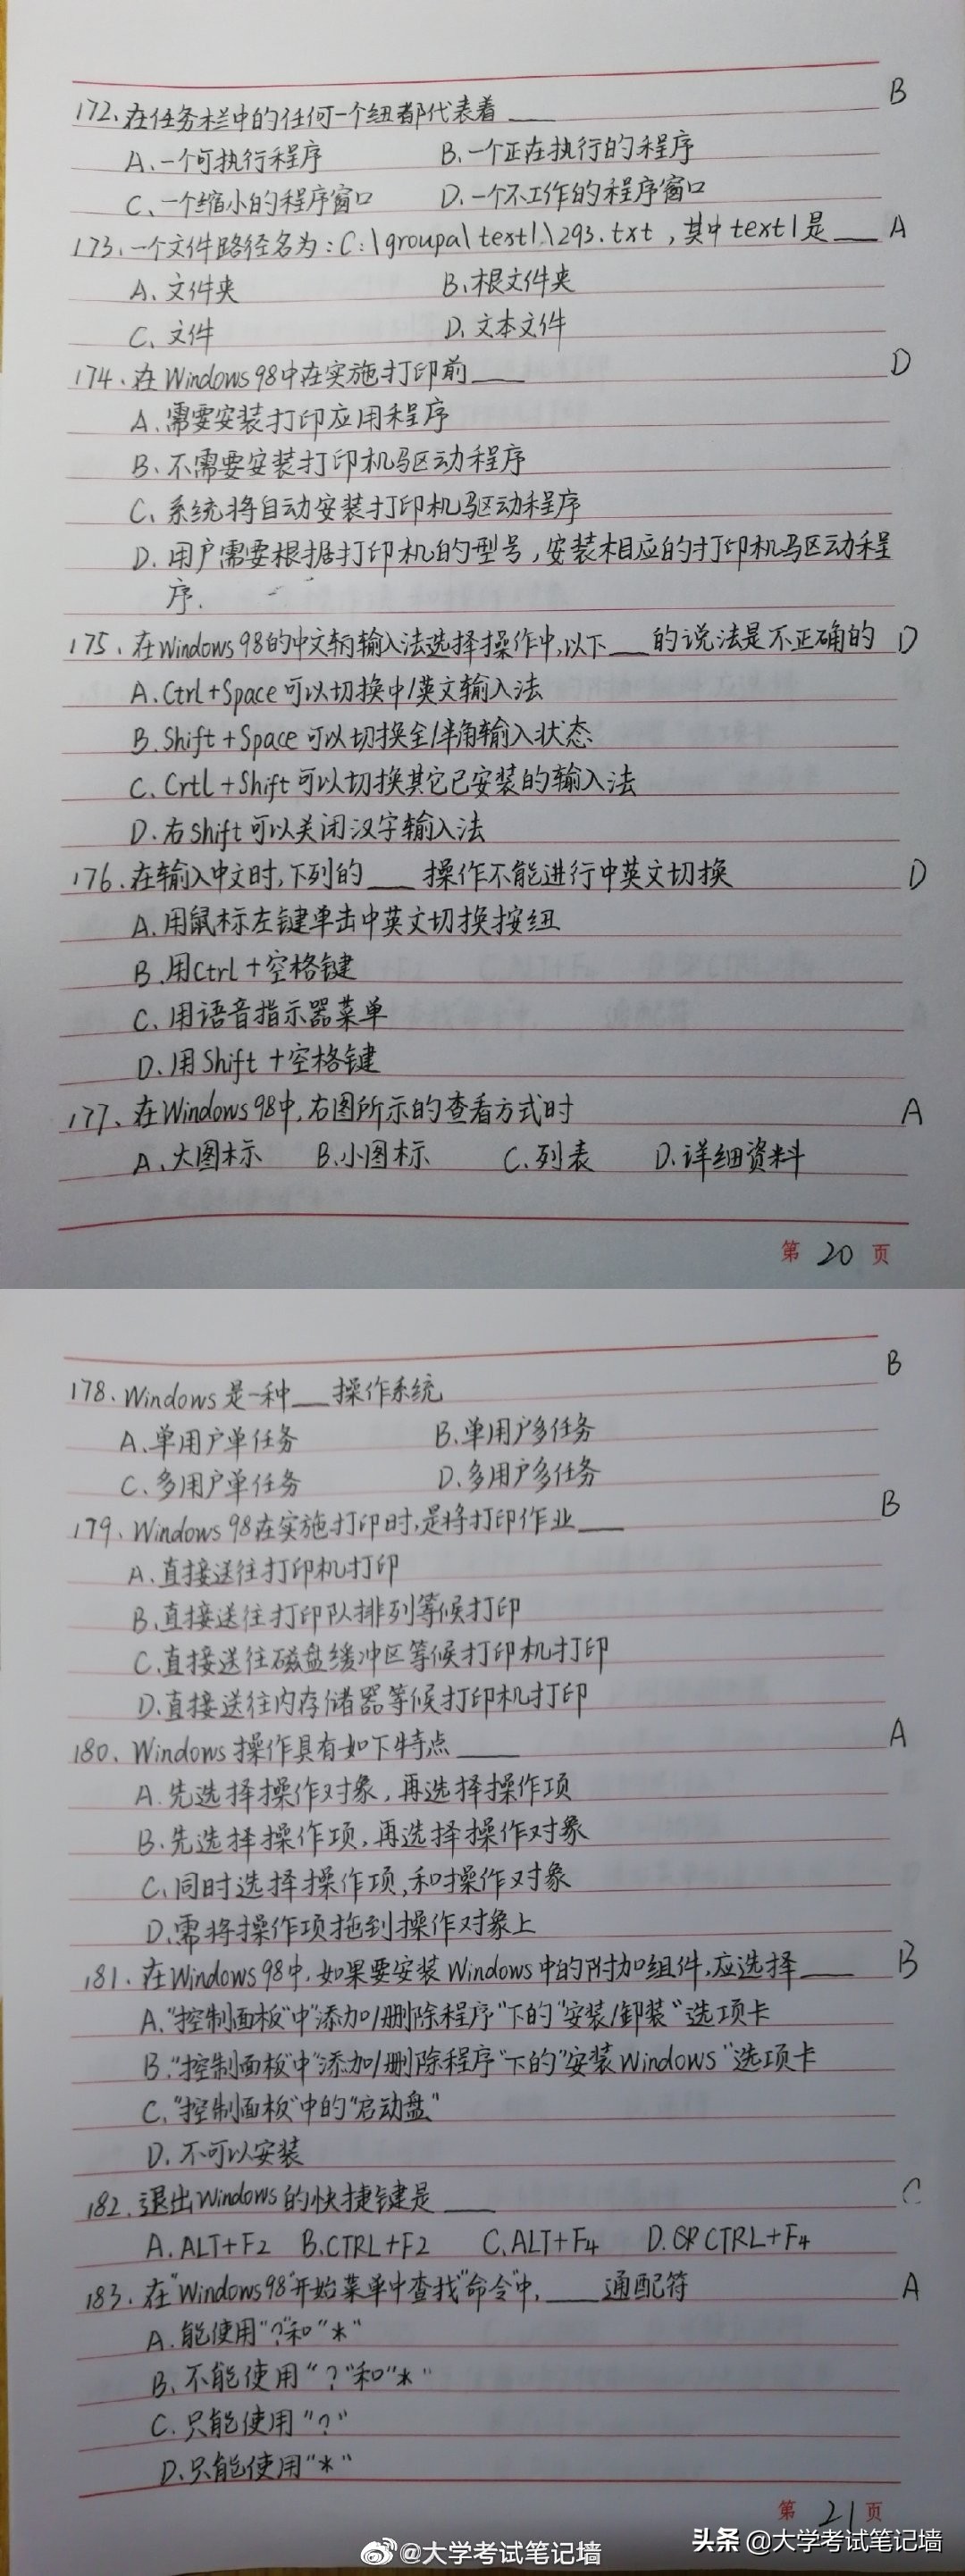 172、在任务栏中的任何一个纽都代表着___ B
A、一个可执行程序 B、一个正在执行的程序
C、一个缩小的程序窗口 D、一个不工作的程序窗口
173、一个文件路径名为：C:\groupa\text1\293.txt，其中text1是___ A
A、文件夹 B、根文件夹
C、文件 D、文本文件
174、在Windows98中在实施打印前___ D
A、需要安装打印应用程序
B、不需要安装打印机驱动程序
C、系统将自动安装打印机驱动程序
D、用户需要根据打印机的型号，安装相应的打印机驱动程
序.
175、在Windows98的中文输入法选择操作中,以下___的说法是不正确的 D
A、Ctrl+Space可以切换中/英文输入法
B、Shift+Space可以切换全/半角输入状态
C、Crtl+Shift可以切换其它已安装的输入法
D、右shift可以关闭汉字输入法
176、在输入中文时,下列的___操作不能进行中英文切换 D
A、用鼠标左键单击中英文切换按纽
B、用Ctrl+空格键
C、用语音指示器菜单
D、用Shift+空格键
177、在Windows98中,右图所示的查看方式时 A
A、大图标 B、小图标 C、列表 D、详细资料
第 20 页
178、Windows是一种___操作系统 B
A、单用户单任务 B、单用户多任务
C、多用户单任务 D、多用户多任务
179、Windows98在实施打印时,是将打印作业___ B
A、直接送往打印机打印
B、直接送往打印队排列等候打印
C、直接送往磁盘缓冲区等候打印机打印
D、直接送往内存储器等候打印机打印
180、Windows操作具有如下特点___ A
A、先选择操作对象，再选择操作项
B、先选择操作项，再选择操作对象
C、同时选择操作项,和操作对象
D、需将操作项拖到操作对象上
181、在Windows98中,如果要安装Windows中的附加组件,应选择___ B
A、"控制面板"中"添加/删除程序"下的"安装/卸装"选项卡
B、"控制面板"中"添加/删除程序"下的"安装Windows"选项卡
C、"控制面板"中的"启动盘"
D、不可以安装
182、退出Windows的快捷键是___ C
A、ALT+F2 B、CTRL+F2 C、ALT+F4 D、CTRL+F4
183、在"Windows98"开始菜单中查找"命令"中,___通配符 A
A、能使用"?"和"*"
B、不能使用"?"和"*"
C、只能使用"?"
D、只能使用"*"
第 21 页
@大学考试笔记墙
头条 @大学考试笔记墙